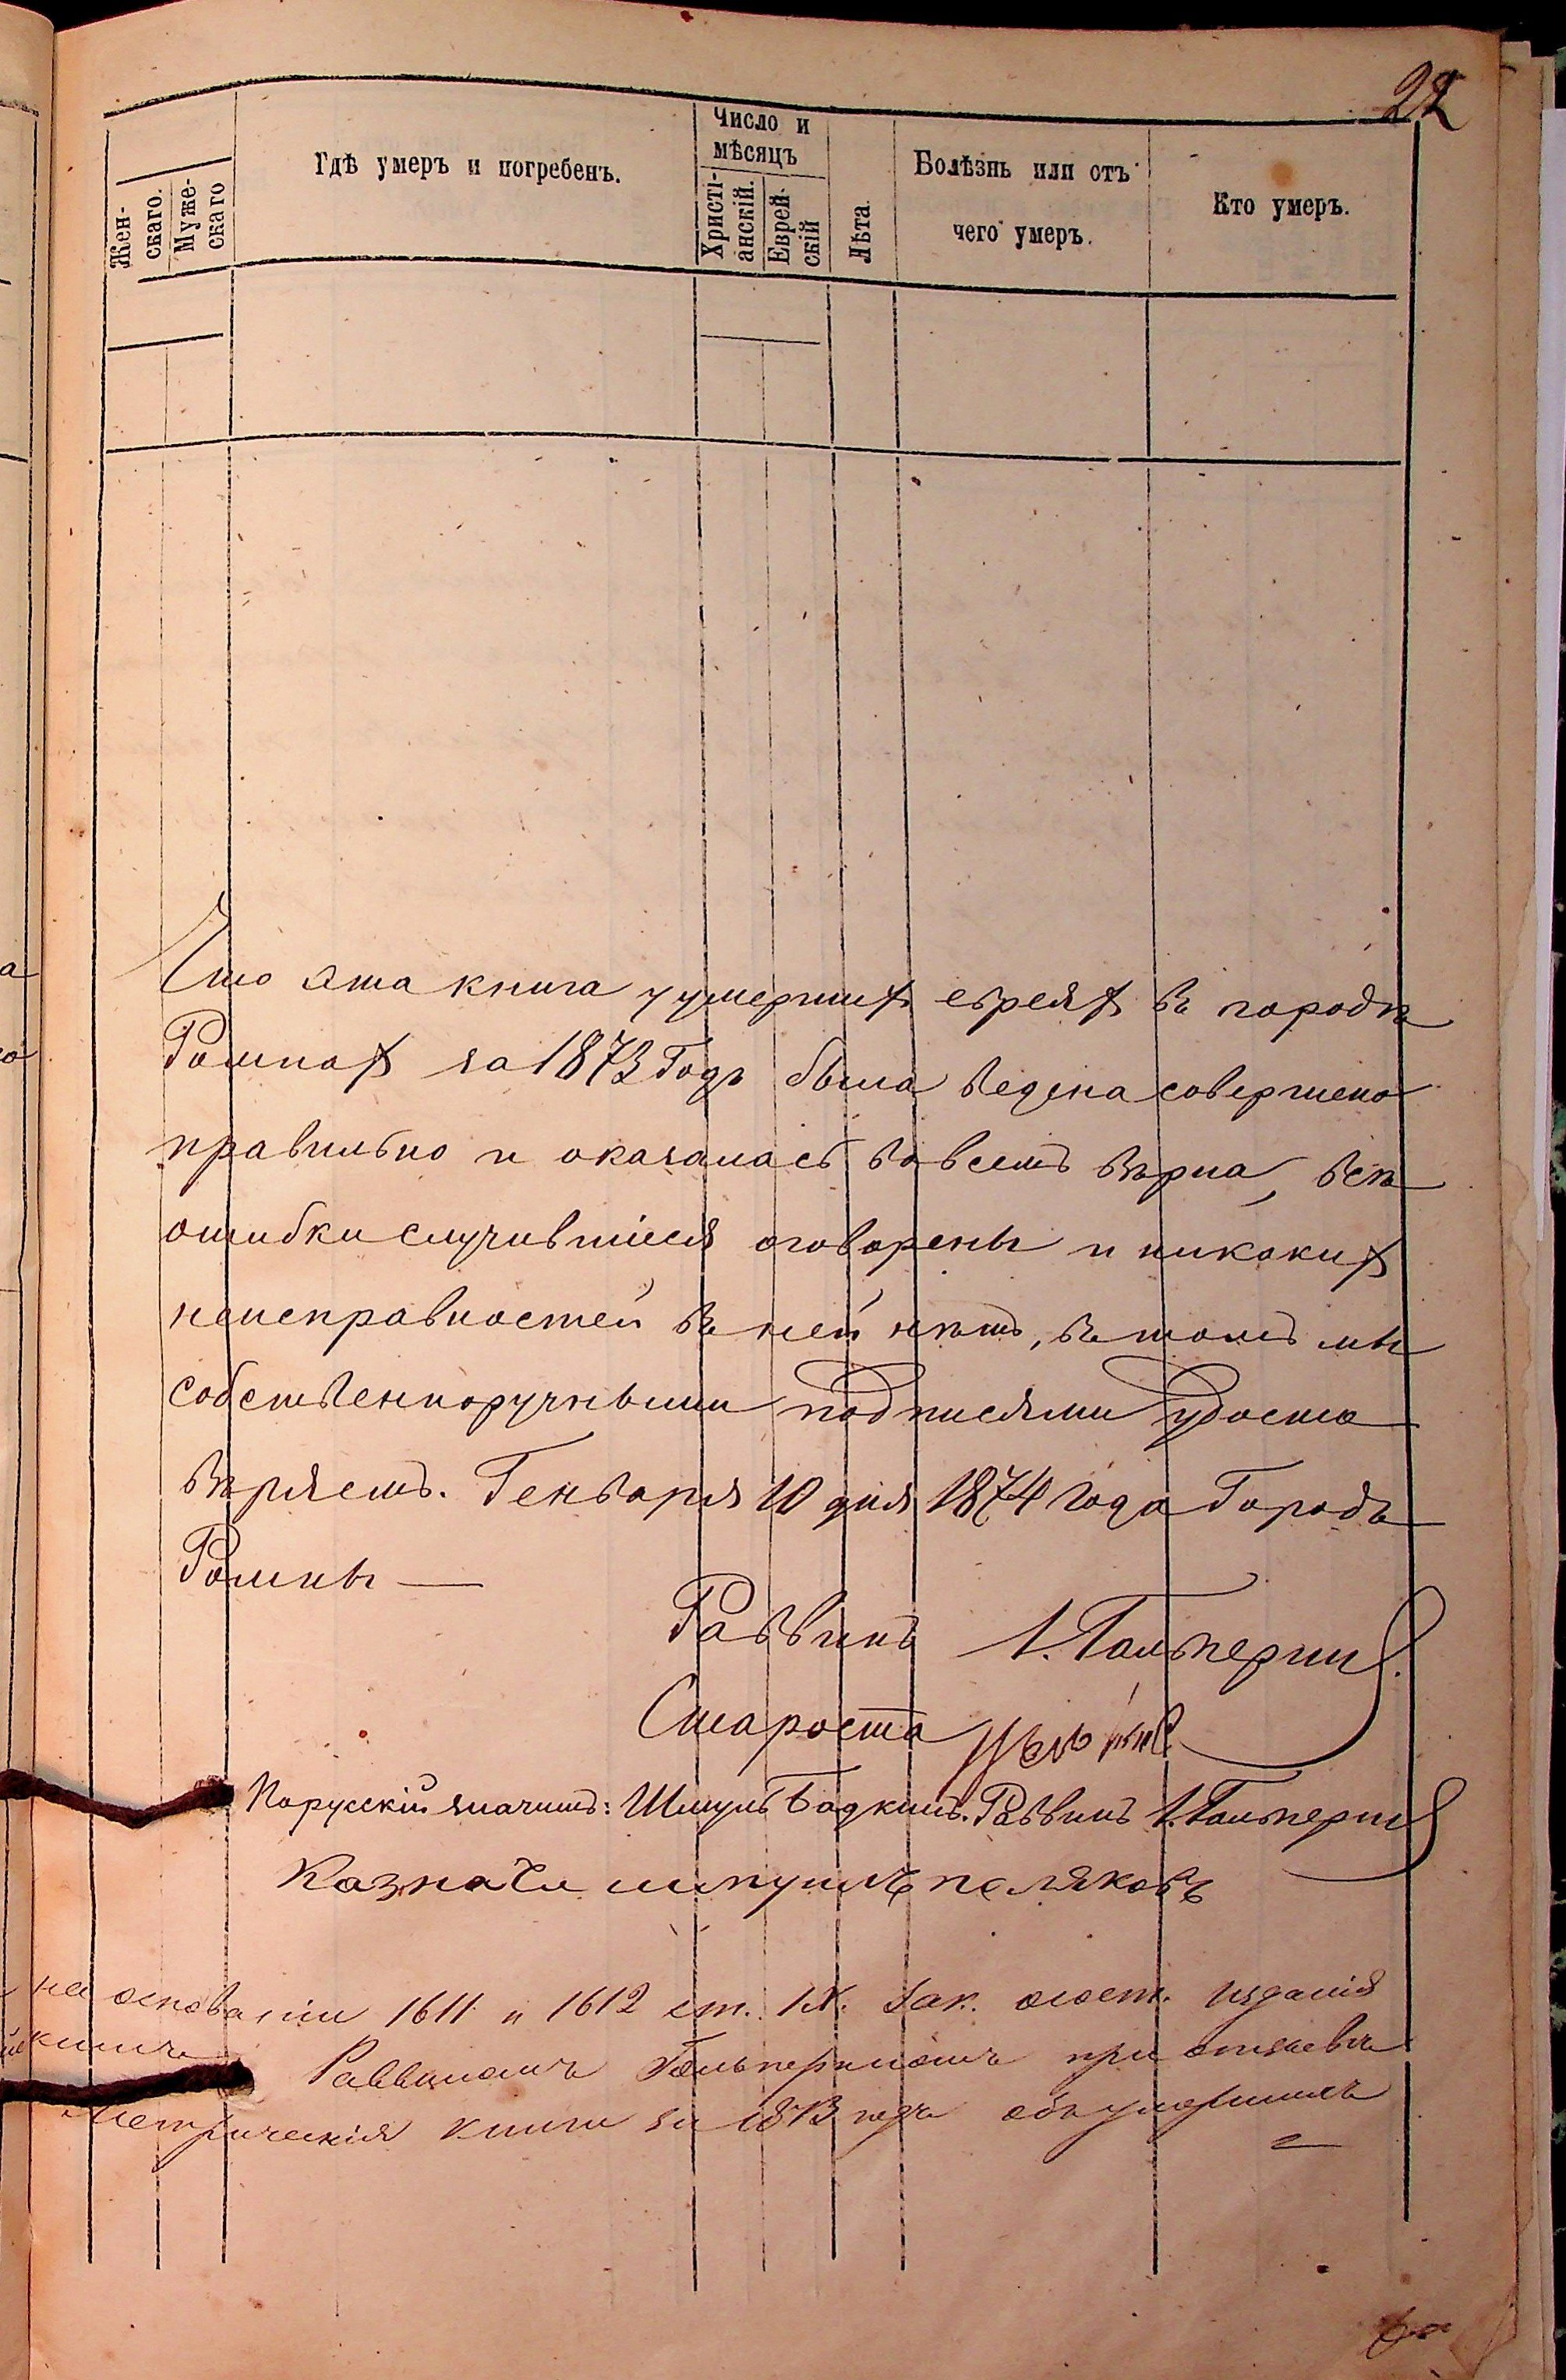 22
Жен-
скаго.
Муже-
скаго
Гдѣ умеръ и погребенъ.
Число и
мѣсяцъ
Христі-
анскій.
Еврей-
скій
Лѣта
Болѣзнь или отъ
чего умеръ.
Кто умеръ.
Что эта книга умершихъ евреяхъ въ городѣ
Ромнахъ за 1873 Годъ была ведена совершено
правильно и оказалась вовсемъ вѣрна, всѣ
ошибки случившіися оговорены и никакихъ
неисправностей въ ней нѣтъ, въ томъ мы
собственноручными подписями удосто
вѣряемъ. Генваря 10 дня 1874 года Городъ
Ромны —
Раввинъ А. Гальперинъ.
Староста
Порусскій значитъ: Шмуль Бадкинъ. Раввинъ А. Гальперинъ
Казначи шмуилъ поляковъ
на основаніи 1611 и 1612 ст. IX. Зак. о сост. изданія
Раввиномъ Гальпериномъ при отзывѣ
Метрическія книги за 1873 годъ объ умершихъ